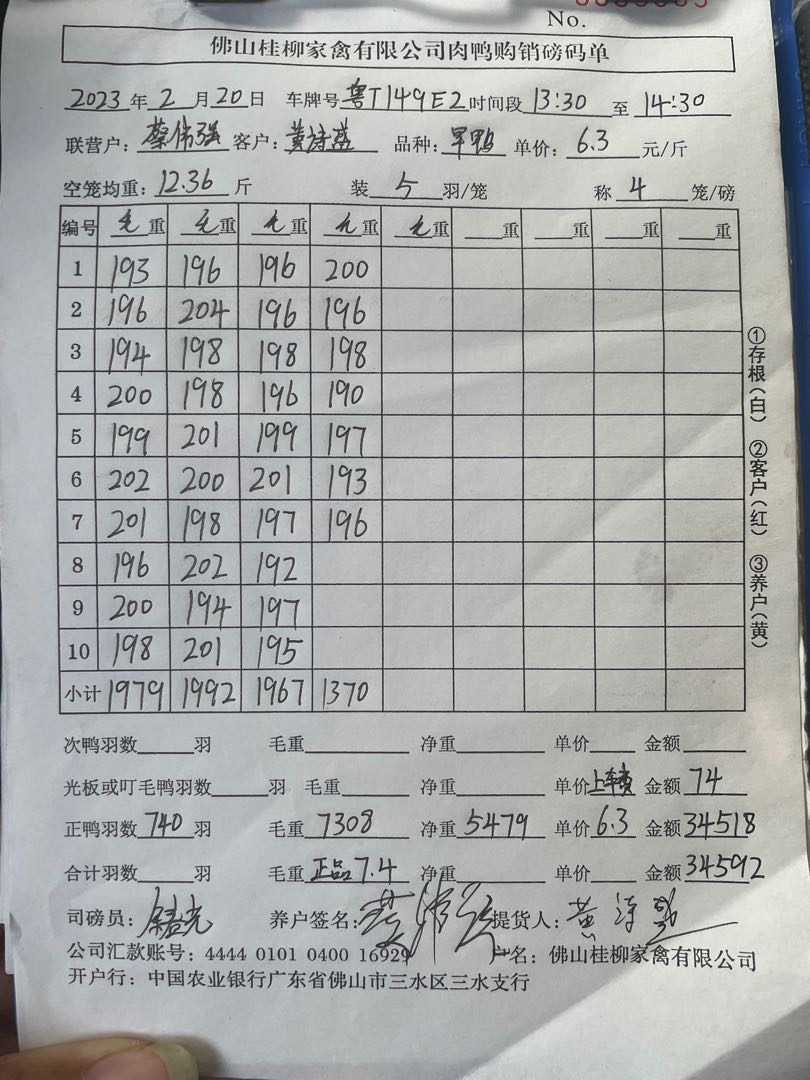 No.
佛山桂柳家禽有限公司肉鸭购销磅码单
2023年2月20日 车牌号粤T149E2时间段13:30至14:30
联营户：蔡伟强 客户：黄诗 品种：旱鸭 单价：6.3元/斤
空笼均重：12.36斤 装5羽/笼 称4笼/磅
编号 毛重 毛重 毛重 毛重 毛重 重 重 重 重
1 193 196 196 200
2 196 204 196 196
3 194 198 198 198
4 200 198 196 190
5 199 201 199 197
6 202 200 201 193
7 201 198 197 196
8 196 202 192
9 200 194 197
10 198 201 195
小计 1979 1992 1967 1370
①存根（白） ②客户（红） ③养户（黄）
次鸭羽数 羽 毛重 净重 单价 金额
光板或叮毛鸭羽数 羽 毛重 净重 单价上车费 金额74
正鸭羽数740羽 毛重7308 净重5479 单价6.3 金额34518
合计羽数 羽 毛重正品7.4 净重 单价 金额34592
司磅员： 养户签名：蔡伟强 提货人：黄
公司汇款账号：4444 0101 0400 16929 户名：佛山桂柳家禽有限公司
开户行：中国农业银行广东省佛山市三水区三水支行